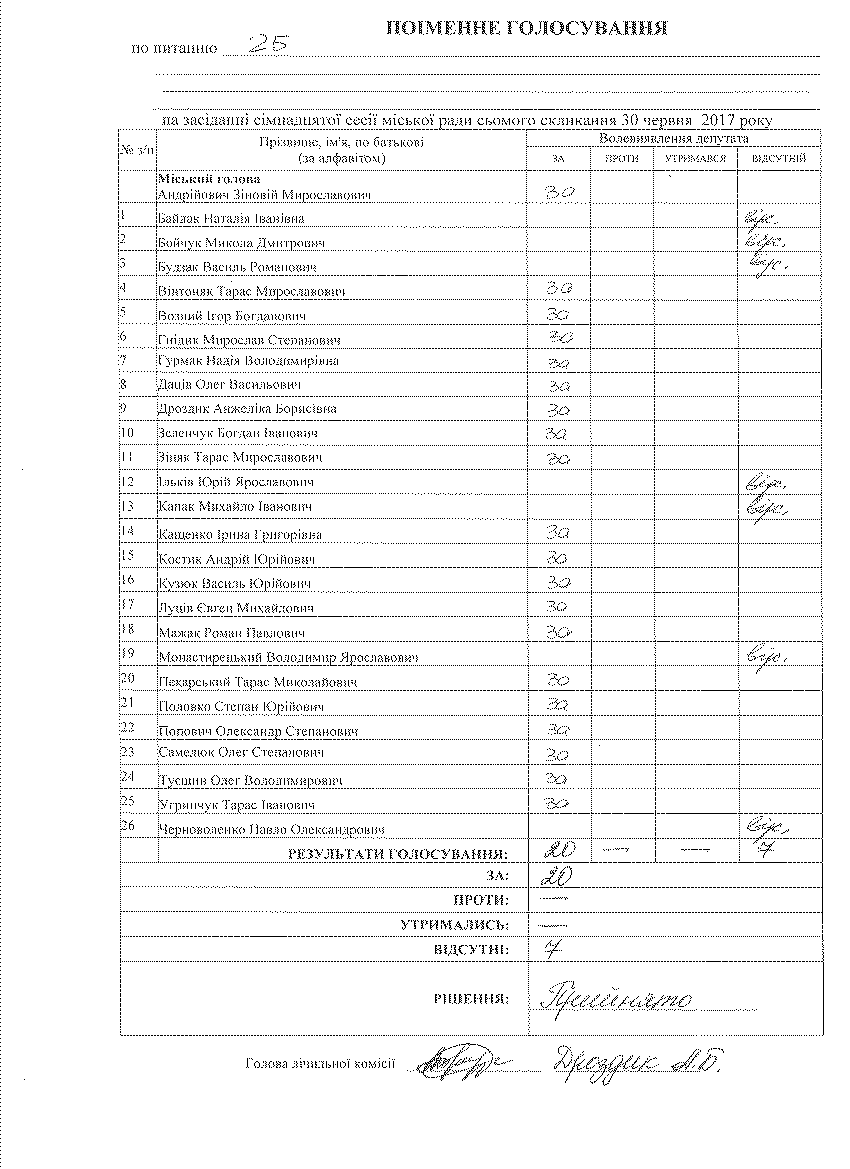 ПОІМЕННЕ ГОЛОСУВАННЯ
по питанню 25
на засіданні сімнадцятої сесії міської ради сьомого скликання 30 червня 2017 року
№ з/п Прізвище, ім'я, по батькові (за алфавітом) Волевиявлення депутата
ЗА ПРОТИ УТРИМАВСЯ ВІДСУТНІЙ
Міський голова
Андрійович Зіновій Мирославович за
1 Байдак Наталія Іванівна відс.
2 Бойчук Микола Дмитрович відс.
3 Будзак Василь Романович відс.
4 Вінтоняк Тарас Мирославович за
5 Возний Ігор Богданович за
6 Гнідик Мирослав Степанович за
7 Гурмак Надія Володимирівна за
8 Даців Олег Васильович за
9 Дроздик Анжеліка Борисівна за
10 Зеленчук Богдан Іванович за
11 Зіняк Тарас Мирославович за
12 Ільків Юрій Ярославович відс.
13 Капак Михайло Іванович відс.
14 Кащенко Ірина Григорівна за
15 Костик Андрій Юрійович за
16 Кузюк Василь Юрійович за
17 Луців Євген Михайлович за
18 Мажак Роман Павлович за
19 Монастирецький Володимир Ярославович відс.
20 Пекарський Тарас Миколайович за
21 Половко Степан Юрійович за
22 Попович Олександр Степанович за
23 Самелюк Олег Степанович за
24 Тусшин Олег Володимирович за
25 Угринчук Тарас Іванович за
26 Черноволенко Павло Олександрович відс.
РЕЗУЛЬТАТИ ГОЛОСУВАННЯ: 20 — — 7
ЗА: 20
ПРОТИ: —
УТРИМАЛИСЬ: —
ВІДСУТНІ: 7
РІШЕННЯ: Прийнято
Голова лічильної комісії Дроздик А.Б.